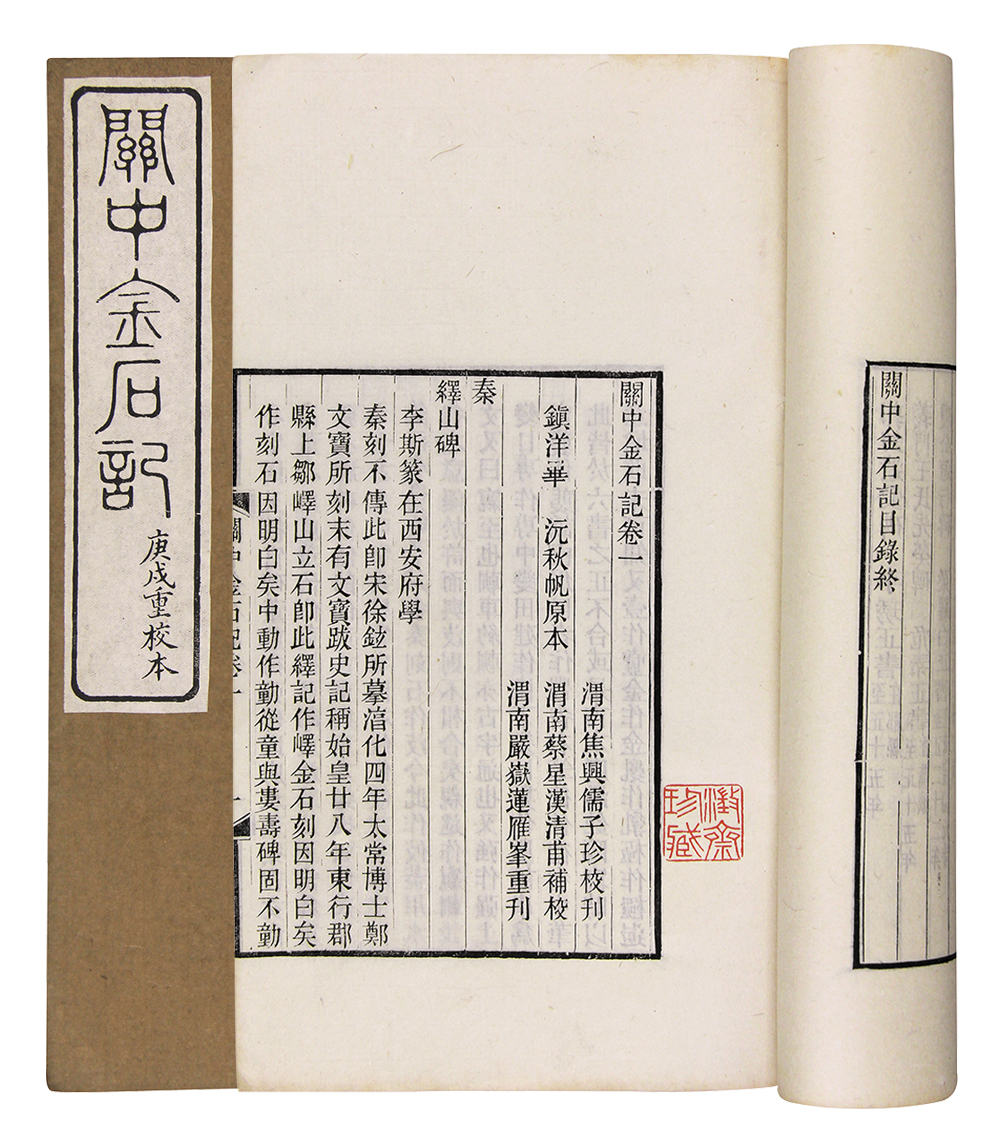 關中金石記
庚戌重校本
關中金石記目錄終
關中金石記卷一
鎭洋畢　沅秋帆原本
渭南焦興儒子珍校刊
渭南蔡星漢清甫補校
渭南嚴嶽蓮雁峯重刊
秦
繹山碑
李斯篆在西安府學
秦刻不傳此卽宋徐鉉所摹淯化四年太常博士鄭
文寶所刻末有文寶跋史記稱始皇廿八年東行郡
縣上鄒嶧山立石卽此繹記作嶧金石刻因明白矣
作刻石因明白矣中動作勭從童與婁壽碑固不勭
關中金石記卷一
一
澂齋
珍藏